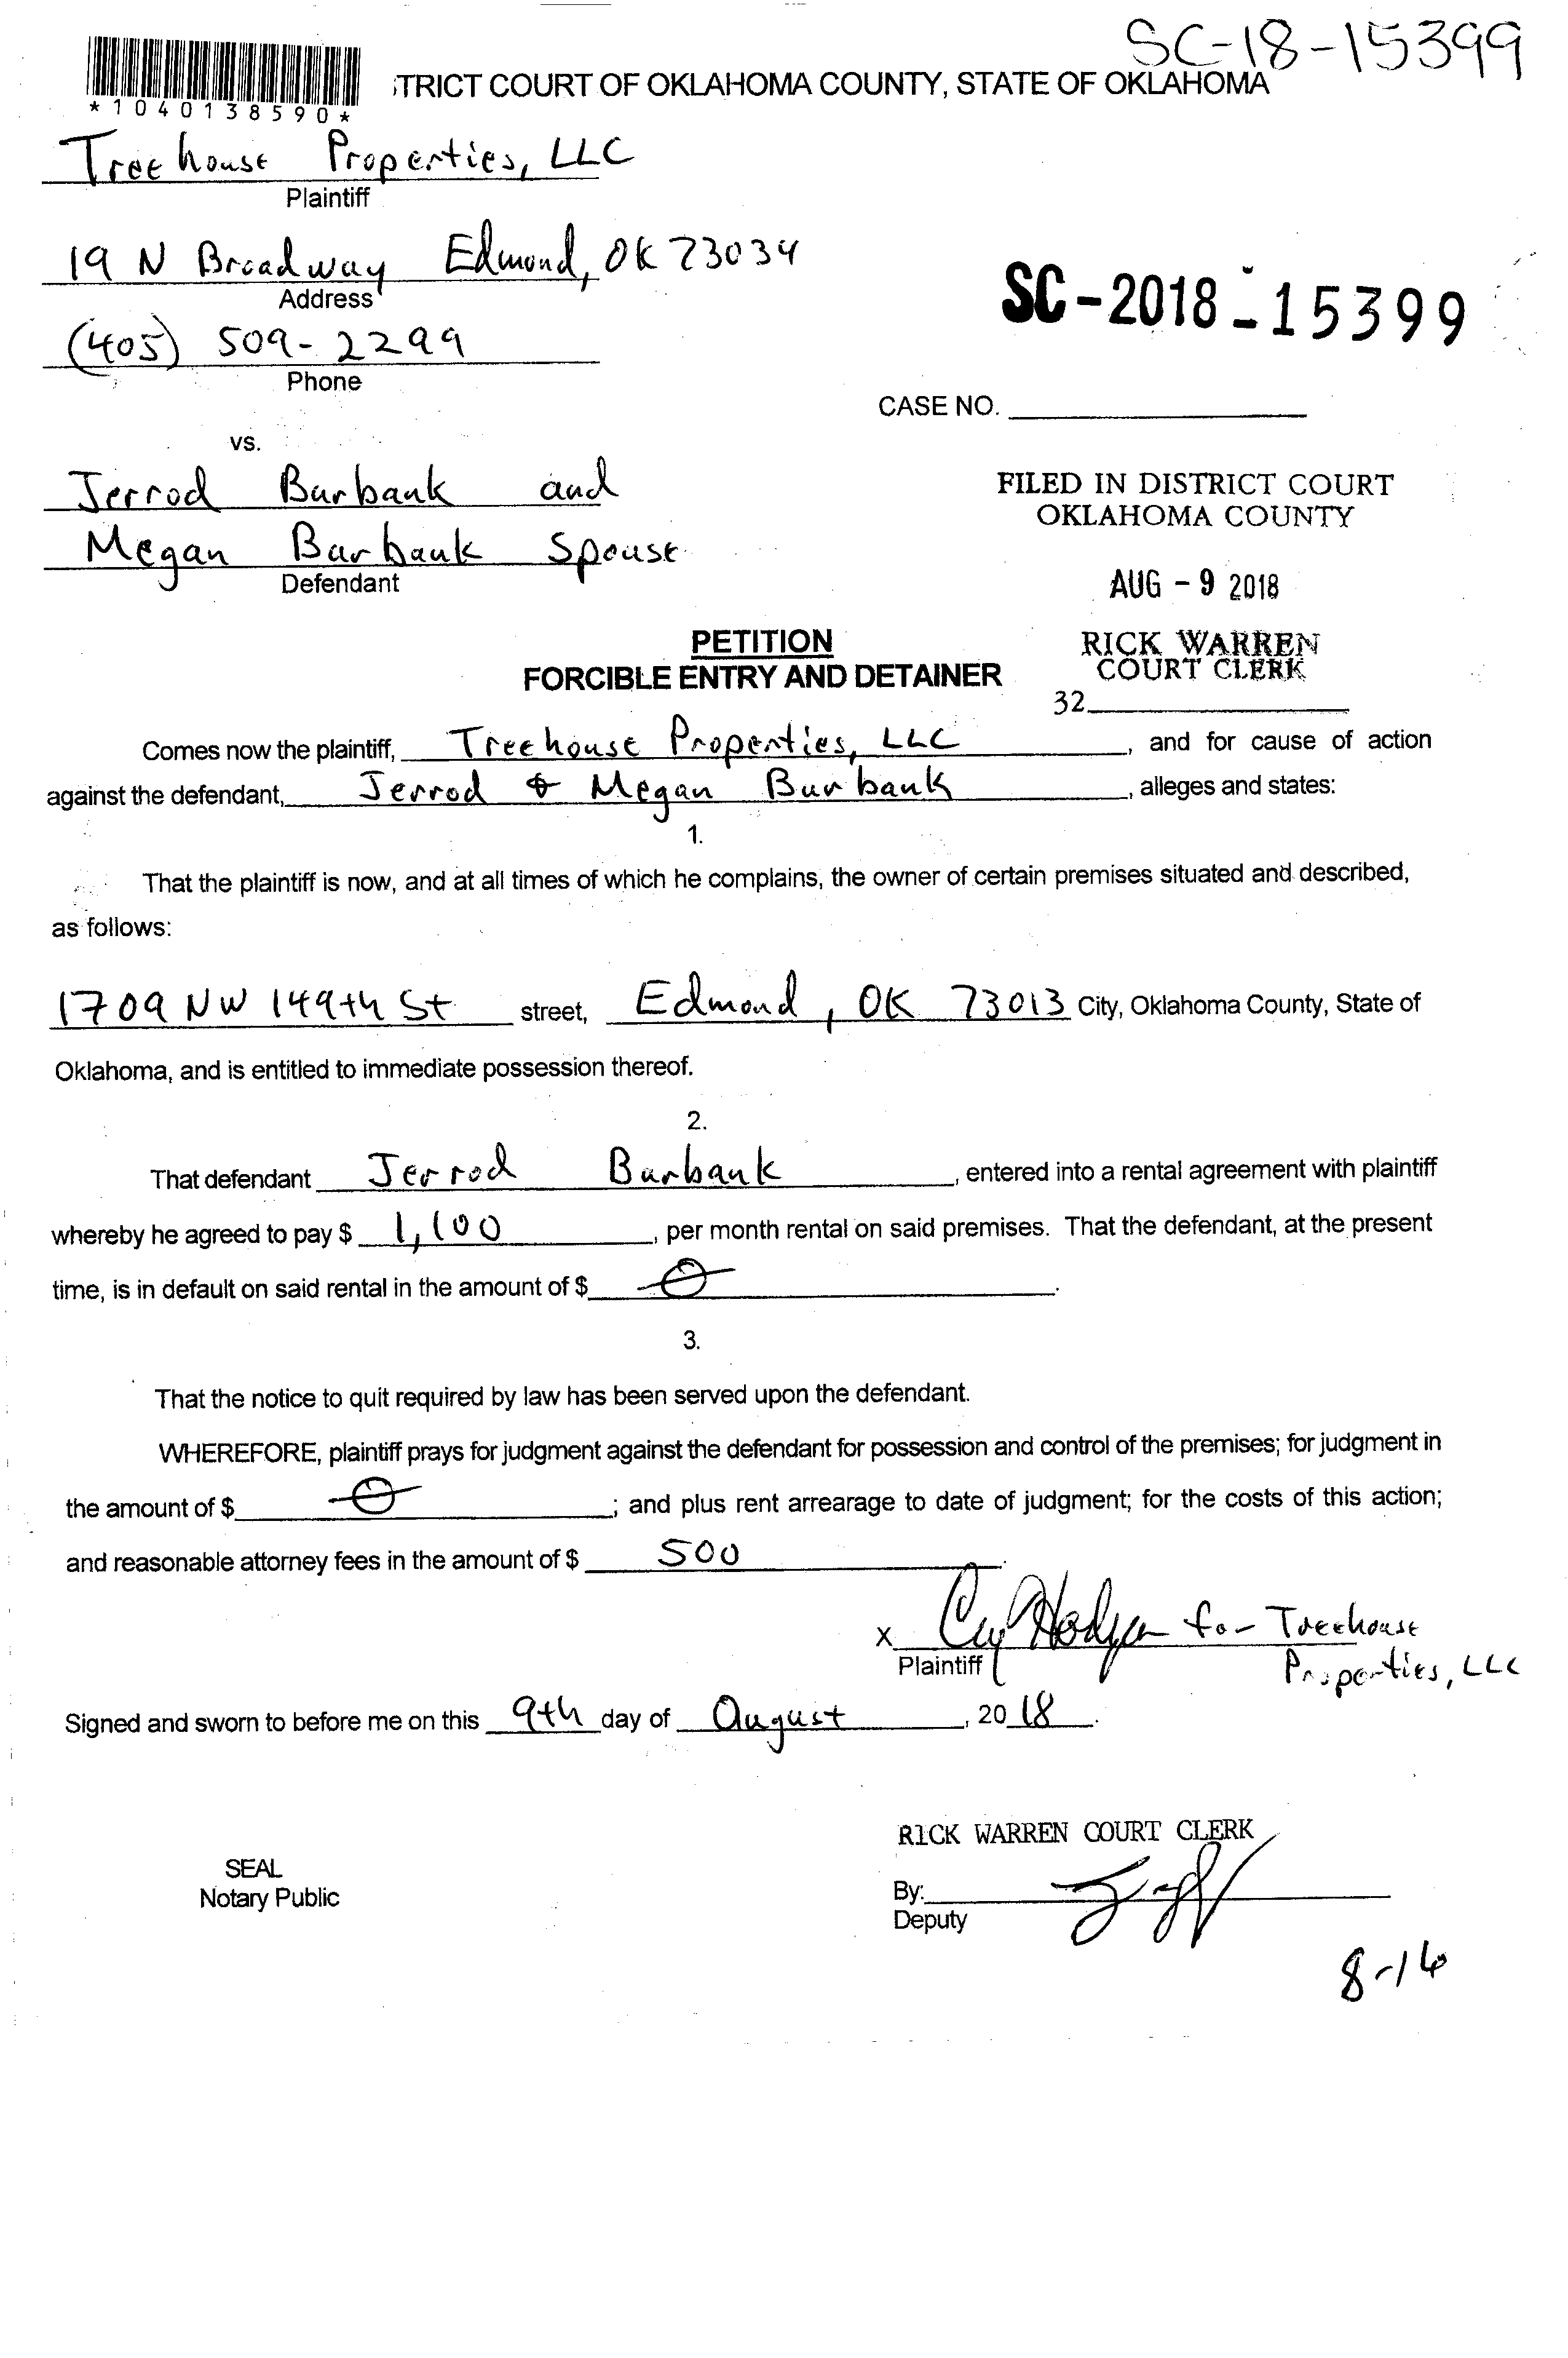 SC-18-15399
*1040138590*
TRICT COURT OF OKLAHOMA COUNTY, STATE OF OKLAHOMA
Treehouse Properties, LLC
Plaintiff
19 N Broadway Edmond, OK 73034
Address
SC-2018-15399
(405) 509-2299
Phone
CASE NO.
vs.
Jerrod Burbank and
FILED IN DISTRICT COURT
OKLAHOMA COUNTY
Megan Burbank Spouse
Defendant
AUG - 9 2018
PETITION
FORCIBLE ENTRY AND DETAINER
RICK WARREN
COURT CLERK
32
Comes now the plaintiff, Treehouse Properties, LLC, and for cause of action
against the defendant, Jerrod & Megan Burbank, alleges and states:
1.
That the plaintiff is now, and at all times of which he complains, the owner of certain premises situated and described,
as follows:
1709 NW 149th St street, Edmond, OK 73013 City, Oklahoma County, State of
Oklahoma, and is entitled to immediate possession thereof.
2.
That defendant Jerrod Burbank, entered into a rental agreement with plaintiff
whereby he agreed to pay $ 1,100, per month rental on said premises. That the defendant, at the present
time, is in default on said rental in the amount of $ 0.
3.
That the notice to quit required by law has been served upon the defendant.
WHEREFORE, plaintiff prays for judgment against the defendant for possession and control of the premises; for judgment in
the amount of $ 0; and plus rent arrearage to date of judgment; for the costs of this action;
and reasonable attorney fees in the amount of $ 500.
x for Treehouse
Plaintiff Properties, LLC
Signed and sworn to before me on this 9th day of August, 2018.
RICK WARREN COURT CLERK
SEAL
Notary Public
By:
Deputy
8-16